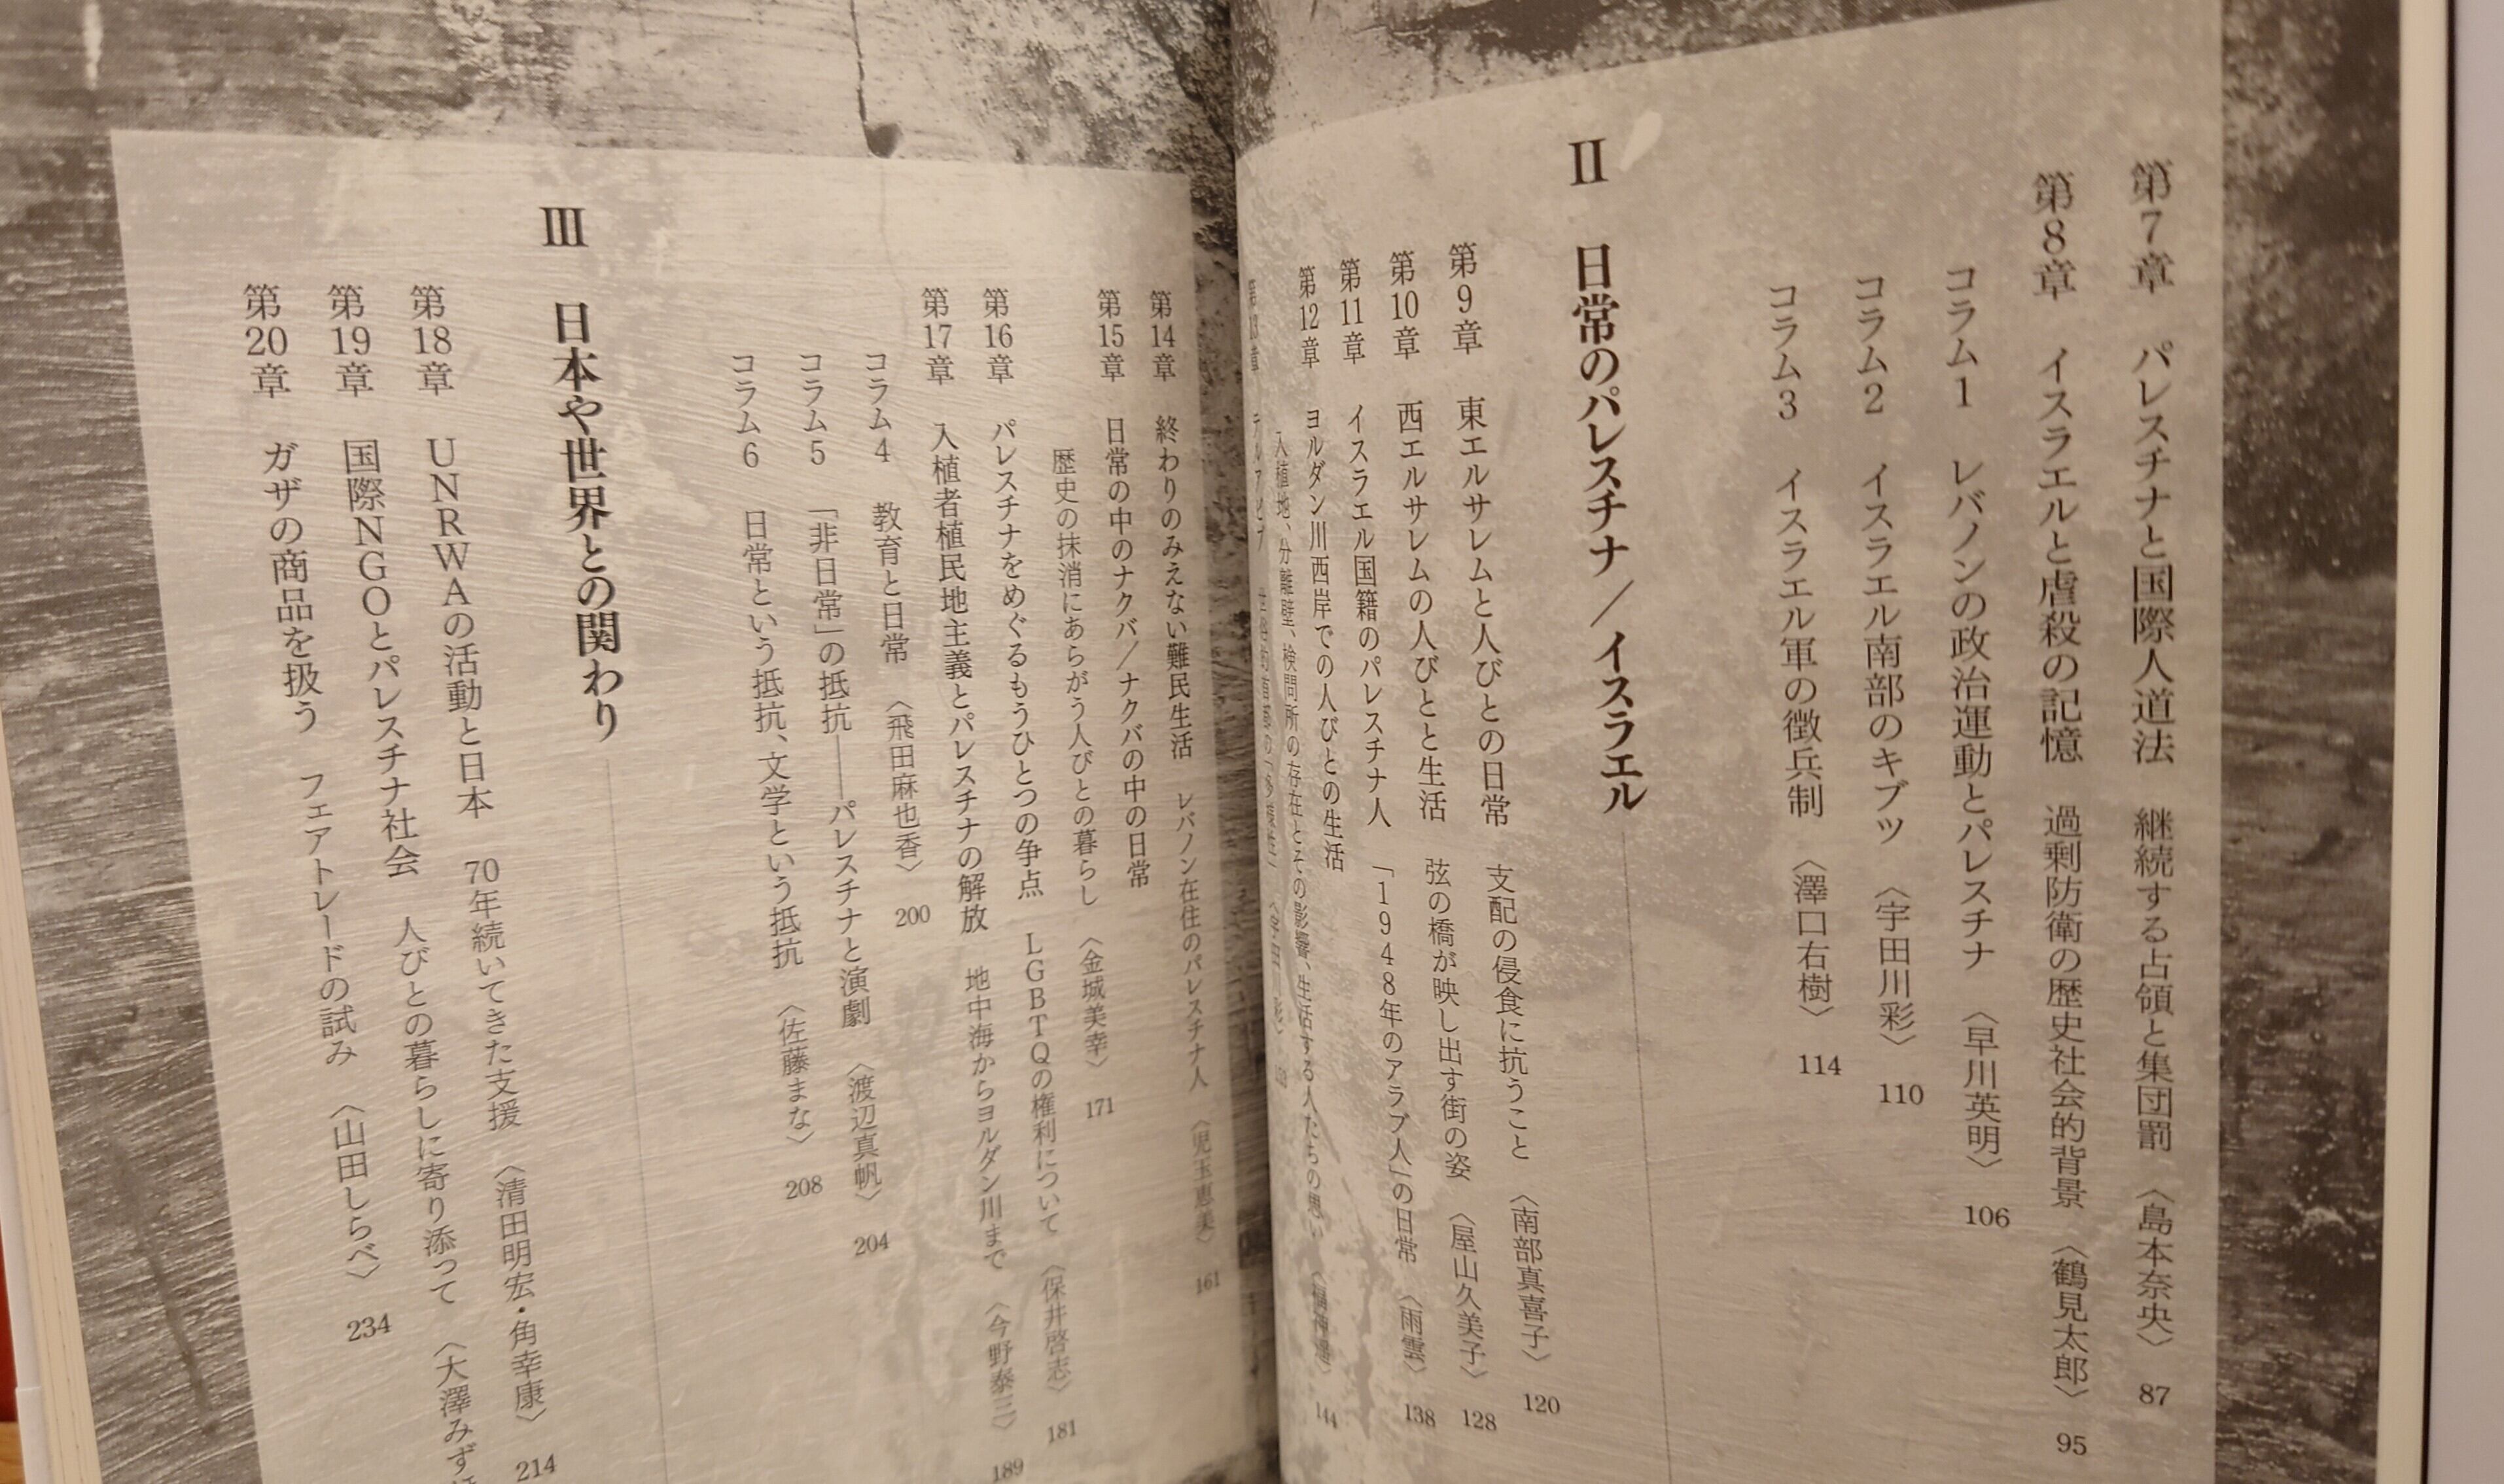 第7章 パレスチナと国際人道法 継続する占領と集団罰 〈島本奈央〉 87
第8章 イスラエルと虐殺の記憶 過剰防衛の歴史社会的背景 〈鶴見太郎〉 95
コラム1 レバノンの政治運動とパレスチナ 〈早川英明〉 106
コラム2 イスラエル南部のキブツ 〈宇田川彩〉 110
コラム3 イスラエル軍の徴兵制 〈澤口右樹〉 114
Ⅱ 日常のパレスチナ／イスラエル
第9章 東エルサレムと人びとの日常 支配の侵食に抗うこと 〈南部真喜子〉 120
第10章 西エルサレムの人びとと生活 弦の橋が映し出す街の姿 〈屋山久美子〉 128
第11章 イスラエル国籍のパレスチナ人 「1948年のアラブ人」の日常 〈雨雲〉 138
第12章 ヨルダン川西岸での人びとの生活
入植地、分離壁、検問所の存在とその影響、生活する人たちの思い 144
第13章 テルアビブ
第14章 終わりのみえない難民生活 レバノン在住のパレスチナ人 〈児玉恵美〉 161
第15章 日常の中のナクバ／ナクバの中の日常
歴史の抹消にあらがう人びとの暮らし 〈金城美幸〉 171
第16章 パレスチナをめぐるもうひとつの争点 LGBTQの権利について 〈保井啓志〉 181
第17章 入植者植民地主義とパレスチナの解放 地中海からヨルダン川まで 〈今野泰三〉 189
コラム4 教育と日常 〈飛田麻也香〉 200
コラム5 「非日常」の抵抗――パレスチナと演劇 〈渡辺真帆〉 204
コラム6 日常という抵抗、文学という抵抗 〈佐藤まな〉 208
Ⅲ 日本や世界との関わり
第18章 UNRWAの活動と日本 70年続いてきた支援 〈清田明宏・角幸康〉 214
第19章 国際NGOとパレスチナ社会 人びとの暮らしに寄り添って 〈大澤みず
第20章 ガザの商品を扱う フェアトレードの試み 〈山田しらべ〉 234